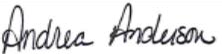 Andrea Anderson